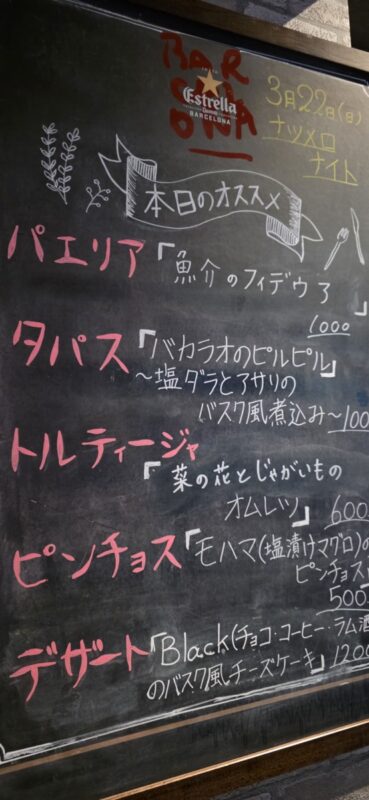 BAR
CELONA
Estrella
Damm
BARCELONA
3月22日(日)
ナツメロ
ナイト
本日のオススメ
パエリア「魚介のフィデウア」
1000
タパス「バカラオのピルピル」
〜塩ダラとアサリの
バスク風煮込み〜100
トルティージャ
「菜の花とじゃがいもの
オムレツ」600
ピンチョス「モハマ(塩漬けマグロ)の
ピンチョス」
500
デザート「Black(チョコ・コーヒー・ラム酒
のバスク風チーズケーキ」1200